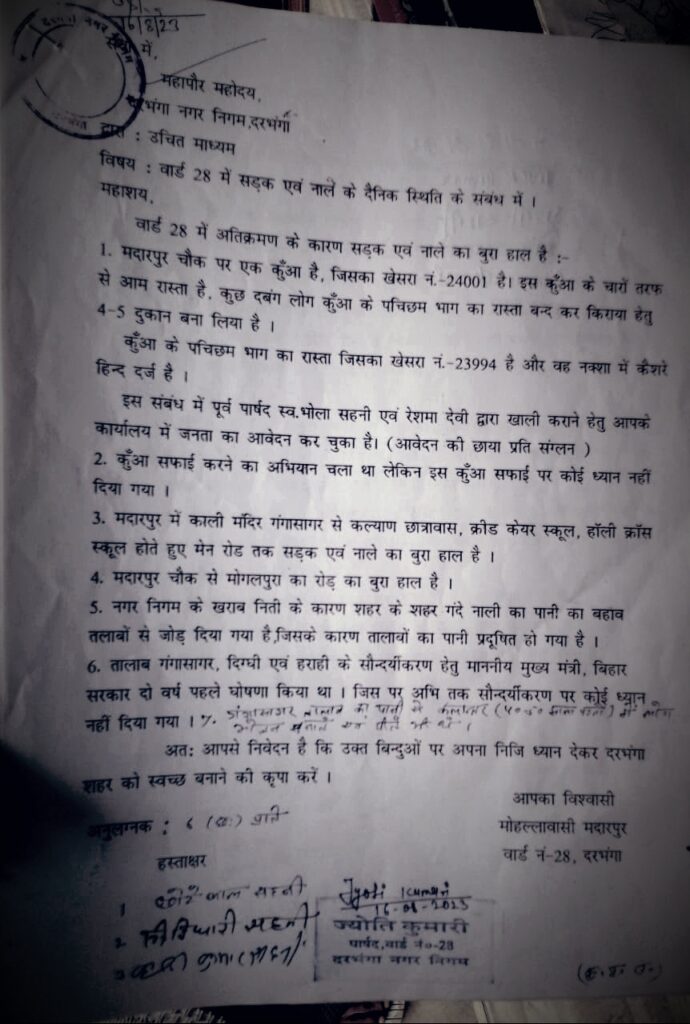 16/8/23
में,
महापौर महोदय,
दरभंगा नगर निगम,दरभंगा
द्वारा : उचित माध्यम
विषय : वार्ड 28 में सड़क एवं नाले के दैनिक स्थिति के संबंध में ।
महाशय,
वार्ड 28 में अतिक्रमण के कारण सड़क एवं नाले का बुरा हाल है :-
1. मदारपुर चौक पर एक कुँआ है, जिसका खेसरा नं.-24001 है। इस कुँआ के चारों तरफ
से आम रास्ता है, कुछ दबंग लोग कुँआ के पचिछम भाग का रास्ता बन्द कर किराया हेतु
4-5 दुकान बना लिया है ।
कुँआ के पचिछम भाग का रास्ता जिसका खेसरा नं.-23994 है और वह नक्शा में कैशरे
हिन्द दर्ज है ।
इस संबंध में पूर्व पार्षद स्व.भोला सहनी एवं रेशमा देवी द्वारा खाली कराने हेतु आपके
कार्यालय में जनता का आवेदन कर चुका है। (आवेदन की छाया प्रति संग्लन )
2. कुँआ सफाई करने का अभियान चला था लेकिन इस कुँआ सफाई पर कोई ध्यान नहीं
दिया गया ।
3. मदारपुर में काली मंदिर गंगासागर से कल्याण छात्रावास, क्रीड केयर स्कूल, हॉली क्रॉस
स्कूल होते हुए मेन रोड तक सड़क एवं नाले का बुरा हाल है ।
4. मदारपुर चौक से मोगलपुरा का रोड़ का बुरा हाल है ।
5. नगर निगम के खराब निती के कारण शहर के शहर गंदे नाली का पानी का बहाव
तलाबों से जोड़ दिया गया है,जिसके कारण तालाबों का पानी प्रदूषित हो गया है ।
6. तालाब गंगासागर, दिग्घी एवं हराही के सौन्दर्यीकरण हेतु माननीय मुख्य मंत्री, बिहार
सरकार दो वर्ष पहले घोषणा किया था । जिस पर अभि तक सौन्दर्यीकरण पर कोई ध्यान
नहीं दिया गया । गंगासागर तालाब का पानी
अतः आपसे निवेदन है कि उक्त बिन्दुओं पर अपना निजि ध्यान देकर दरभंगा
शहर को स्वच्छ बनाने की कृपा करें ।
आपका विश्वासी
मोहल्लावासी मदारपुर
वार्ड नं-28, दरभंगा
अनुलग्नक : 6 (छः) प्रति
हस्ताक्षर
1 लाल सहनी
2 सहनी
3 कुमार
Jyoti Kumari
16-08-2023
ज्योति कुमारी
पार्षद,वार्ड नं०-28
दरभंगा नगर निगम